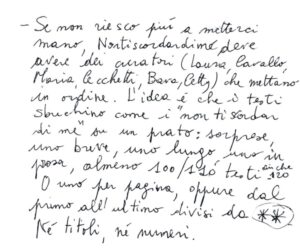 - Se non riesco più a metterci
mano, Nontiscordardime deve
avere dei curatori (Laura, Cavallo,
Maria Cecchetti, Bara, Cetty) che mettano
in ordine. L'idea é che i testi
sbuchino come i "non ti scordar
di me" su un prato: sorprese,
uno breve, uno lungo uno in
prosa, almeno 100/110 testi anche 120
O uno per pagina, oppure dal
primo all'ultimo divisi da **
Né titoli, né numeri.